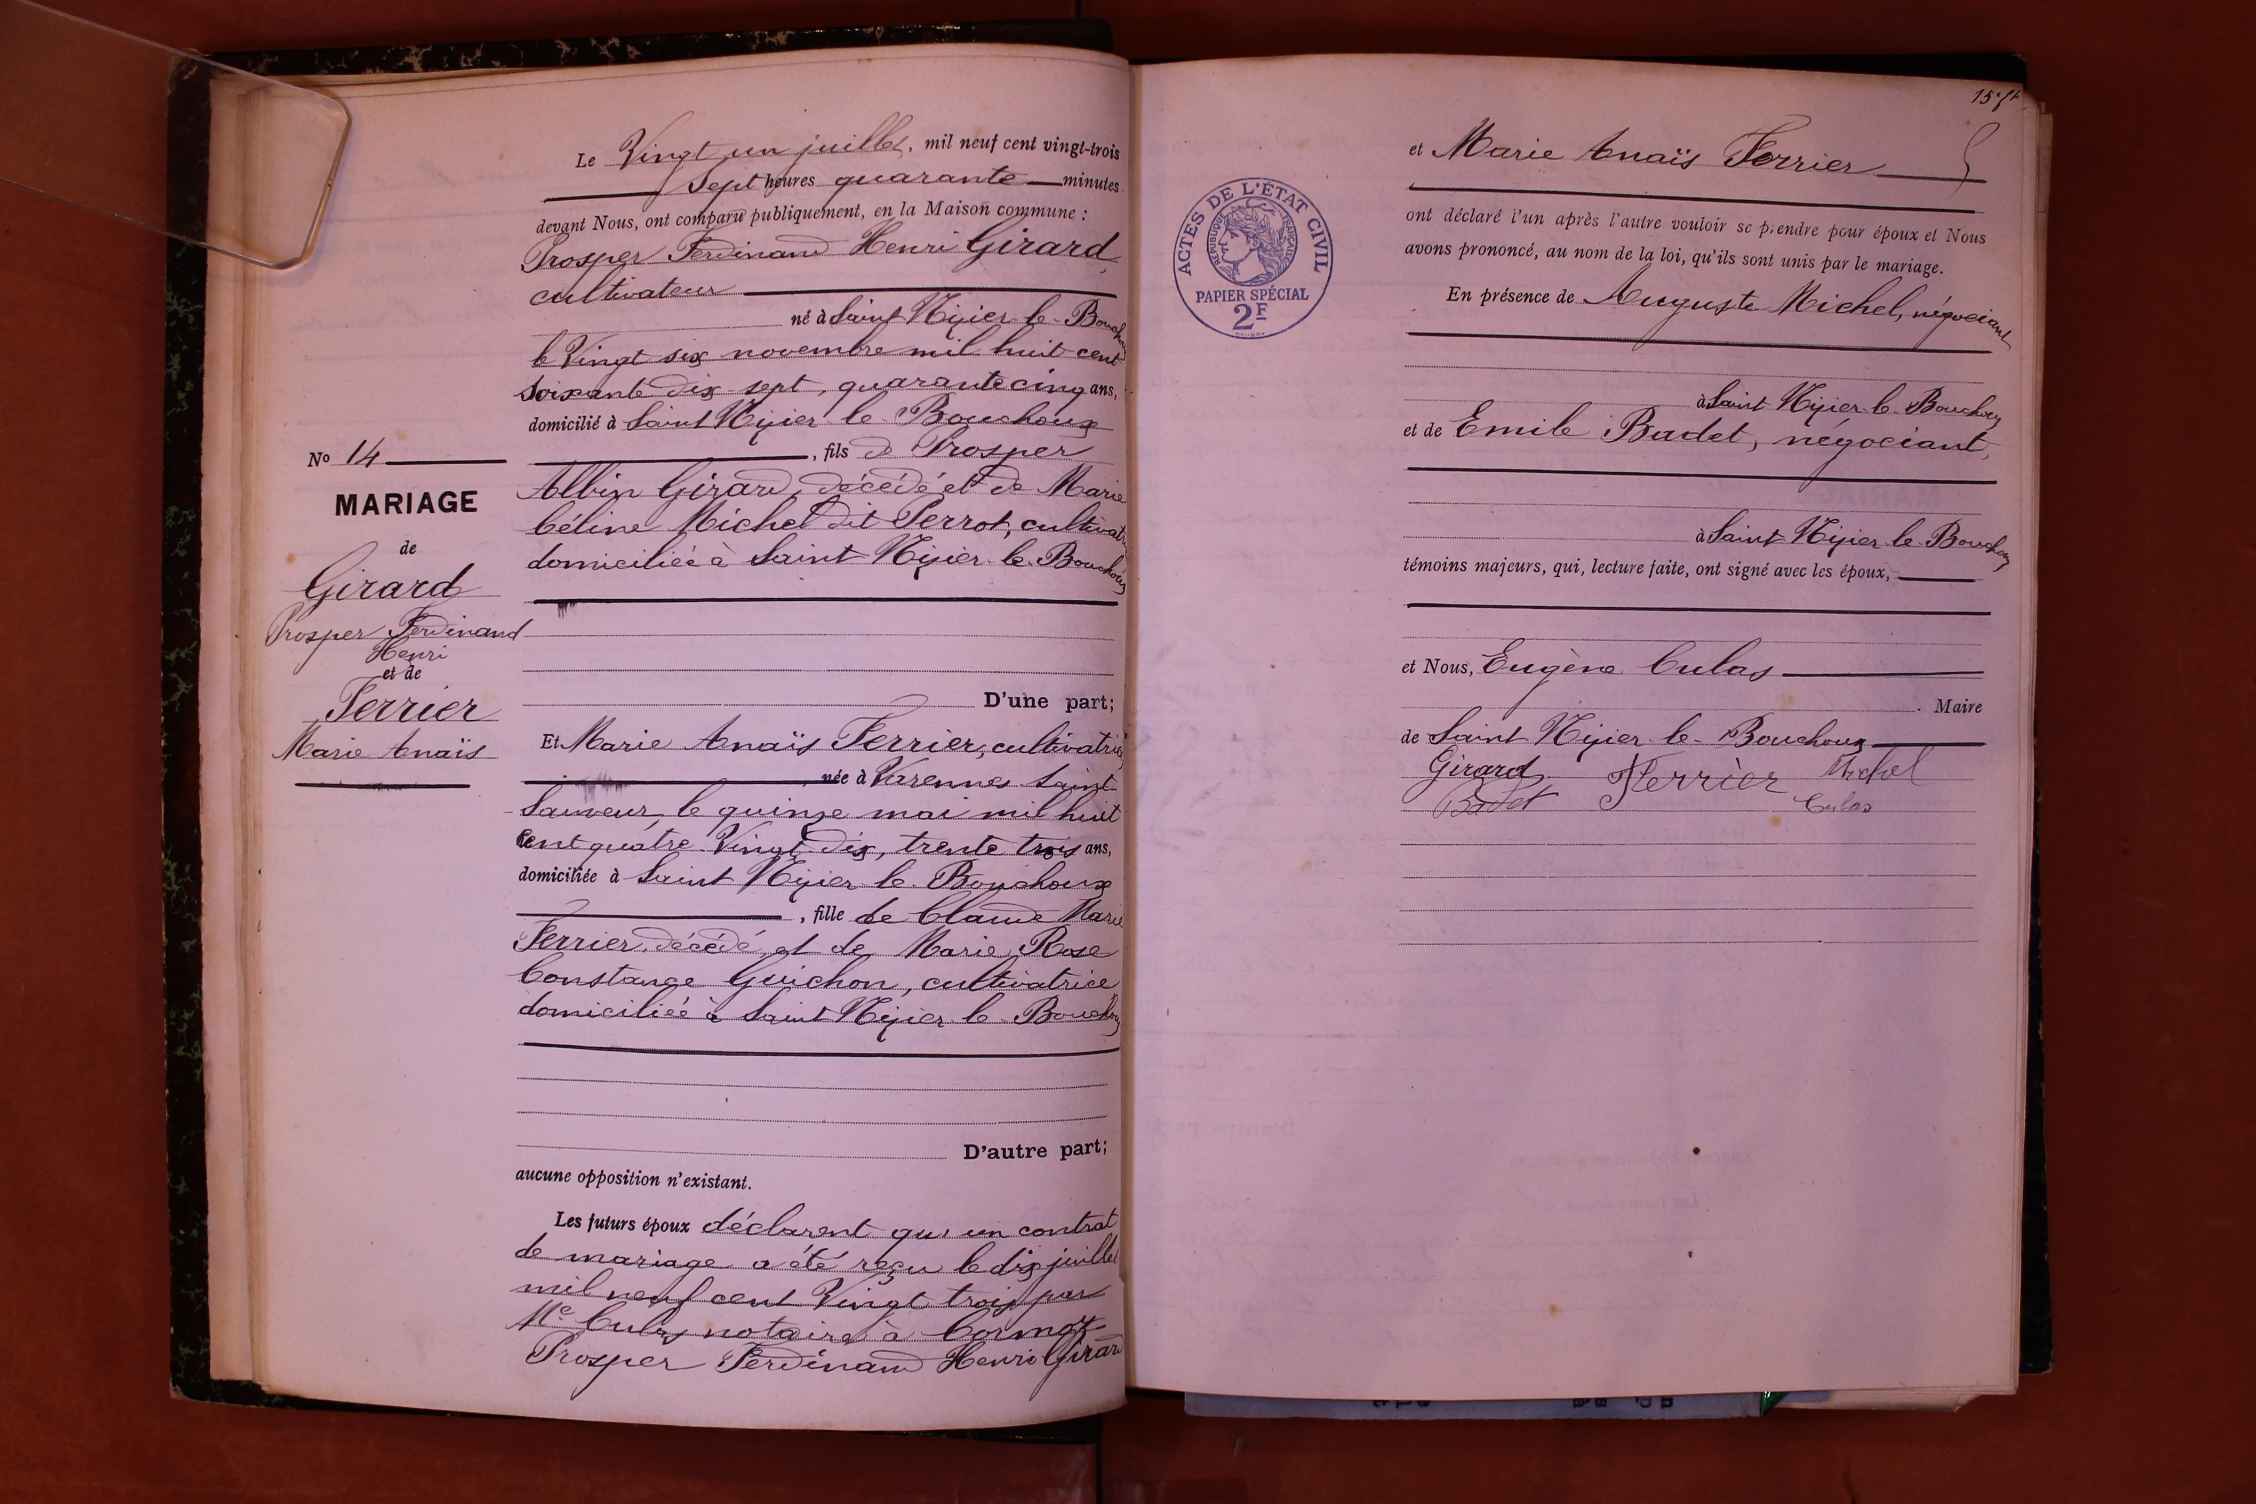 Le Vingt un juillet, mil neuf cent vingt-trois
Sept heures quarante minutes
devant Nous, ont comparu publiquement, en la Maison commune :
Prosper Ferdinand Henri Girard,
cultivateur
né à Saint Nizier le Bouchoux
le Vingt six novembre mil huit cent
soixante dix sept, quarante cinq ans,
domicilié à Saint Nizier le Bouchoux
, fils de Prosper
Albin Girard, décédé et de Marie
Céline Michel dit Perrot, cultivatrice
domiciliée à Saint Nizier le Bouchoux
No 14
MARIAGE
de
Girard
Prosper Ferdinand
Henri
et de
Ferrier
Marie Anaïs
D'une part;
Et Marie Anaïs Ferrier, cultivatrice
née à Varennes Saint
Sauveur, le quinze mai mil huit
Cent quatre Vingt dix, trente trois ans,
domiciliée à Saint Nizier le Bouchoux
, fille de Claude Marie
Ferrier, décédé, et de Marie Rose
Constance Guichon, cultivatrice
domiciliée à Saint Nizier le Bouchoux
D'autre part;
aucune opposition n'existant.
Les futurs époux déclarent qu'un contrat
de mariage a été reçu le dix juillet
mil neuf cent Vingt trois par
Me Culas notaire à Cormoz
Prosper Ferdinand Henri Girard
et Marie Anaïs Ferrier
ont déclaré l'un après l'autre vouloir se prendre pour époux et Nous
avons prononcé, au nom de la loi, qu'ils sont unis par le mariage.
En présence de Auguste Michel, négociant
à Saint Nizier le Bouchoux
et de Emile Badet, négociant,
à Saint Nizier le Bouchoux
témoins majeurs, qui, lecture faite, ont signé avec les époux,
et Nous, Eugène Culas
Maire
de Saint Nizier le Bouchoux
Girard Ferrier Michel
Badet Culas
ACTES DE L'ÉTAT CIVIL
RÉPUBLIQUE FRANÇAISE
PAPIER SPÉCIAL
2F